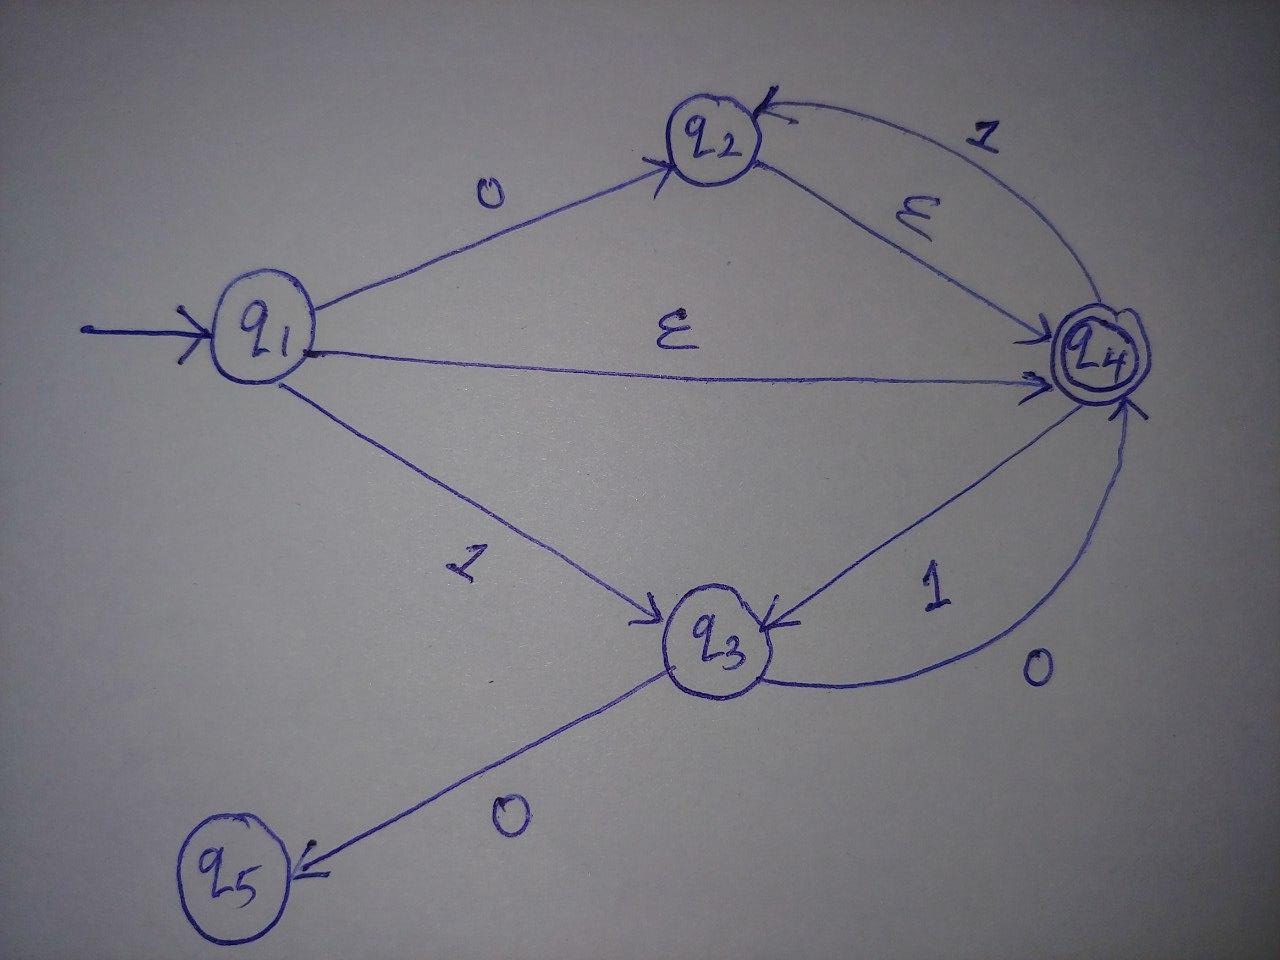 q2
1
0
ε
q1
ε
q4
1
1
q3
0
0
q5